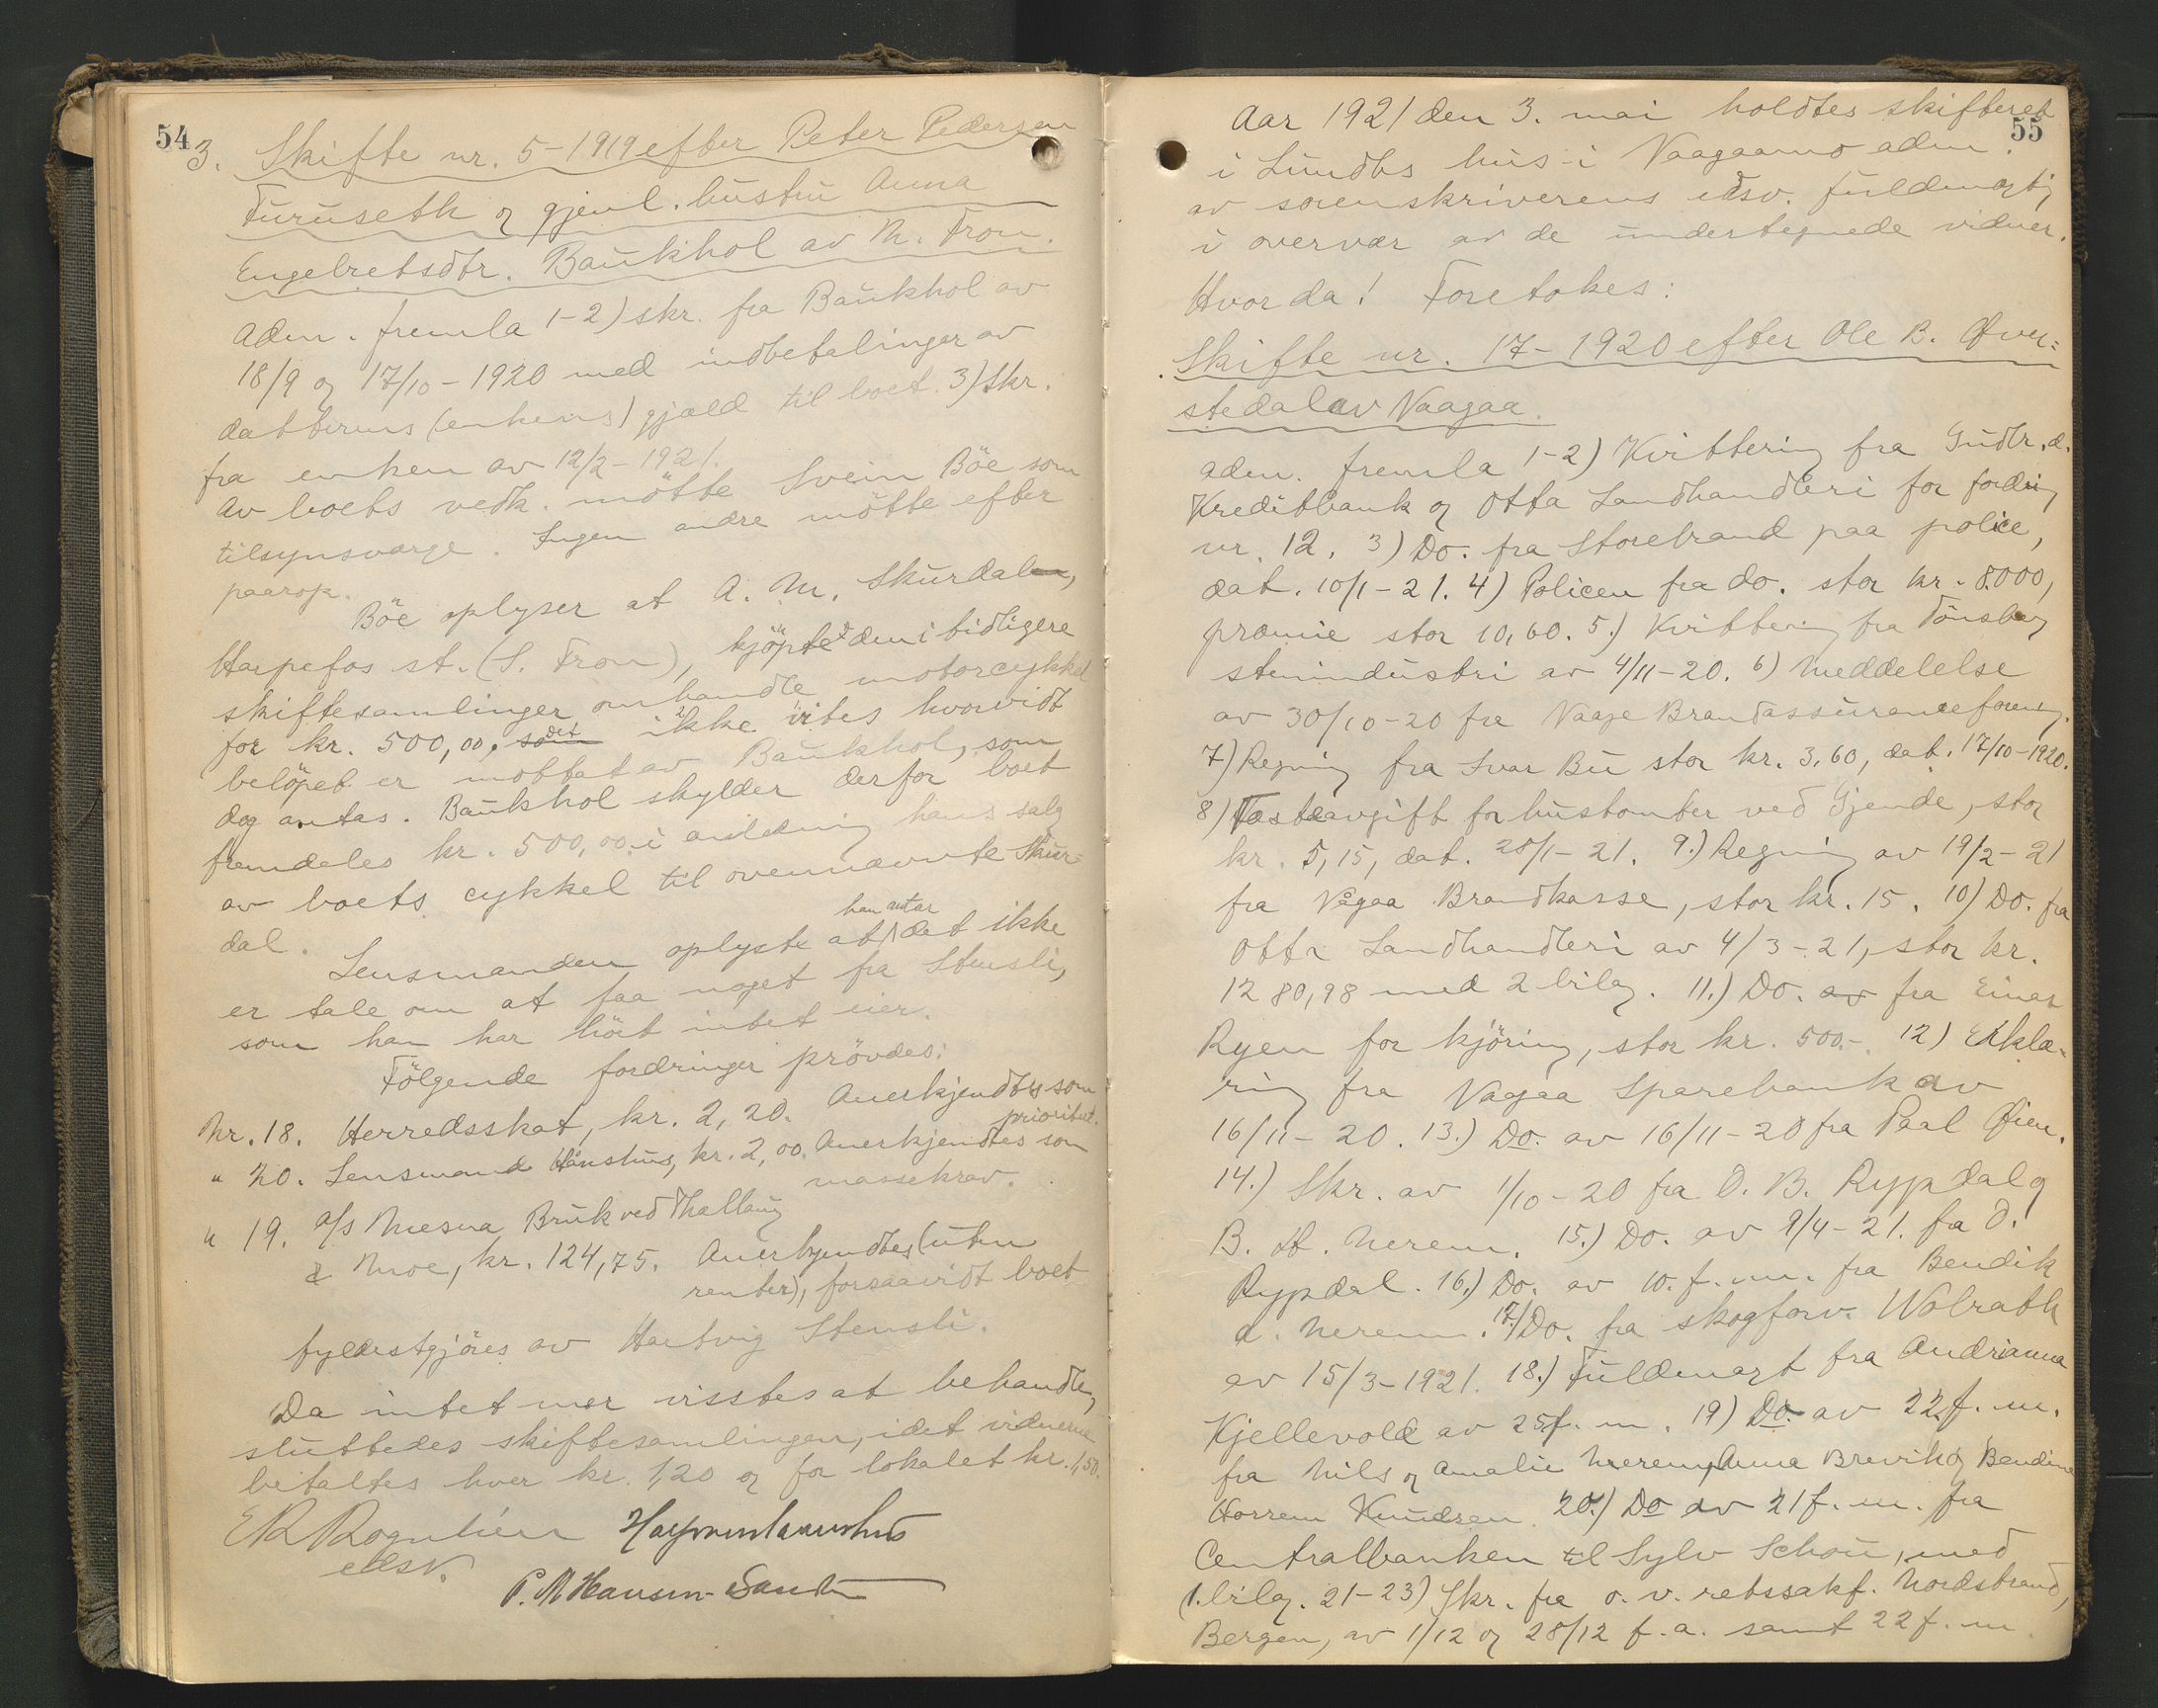 54
3. Skifte nr. 5-1919 efter Peter Pedersen
Furuseth og gjenl. hustru Anna
Engelretsdtr. Baukhol av N. Fron.
Adm. fremla 1-2) skr. fra Baukhol av
18/9 og 17/10-1920 med indbetalinger av
datterens (enkens) gjæld til boet. 3) Skr.
fra enken av 12/2-1921.
Av boets vedk. mötte Svein Böe som
tilsynsværge. Ingen andre mötte efter
paarop.
Böe oplyser at A. M. Skurdal,
Harpefos st. (S. Fron), kjöpte den i tidligere
skiftesamlinger omhandle motorcykkel
for kr. 500,00, det ikke vites hvorvidt
belöpet er mottat av Baukhol, som
dog antas. Baukhol skylder derfor boet
fremdeles kr. 500,00 i anledning hans salg
av boets cykkel til ovennævnte Skur=
dal.
Lensmanden oplyste at han antar det ikke
er tale om at faa noget fra Stensli,
som han har hört intet eier.
Fölgende fordringer prövdes:
Nr. 18. Herredsskat, kr. 2,20. Anerkjendtes som
prioritert.
" 20. Lensmand Hånshus, kr. 2,00. Anerkjendtes som
massekrav.
" 19. a/s Mesna Bruk ved Thallaug
& Moe, kr. 124,75. Anerkjendtes (uten
renter), forsaavidt boet
fyldestgjöres av Hartvig Stensli.
Da intet mer visstes at behandle,
sluttedes skiftesamlingen, idet vidnerne
betaltes hver kr. 1,20 og for lokalet kr. 1,50.
ER Rognlien
edsv.
P. M Hansen-Sandbu
55
Aar 1921 den 3. mai holdtes skifteret
i Lundbs hus i Vaagaamo adm.
av sorenskriverens edsv. fuldmægtig
i overvær av de undertegnede vidner.
Hvorda! Foretokes:
Skifte nr. 17-1920 efter Ole B. Øver=
stedal av Vaagaa.
Adm. fremla 1-2) Kvittering fra Gudbr.d.
Kreditbank og Otta Landhandleri for fordring
nr. 12. 3) Do. fra Storebrand paa police,
dat. 10/1-21. 4) Policen fra do. stor kr. 8000,
præmie stor 10,60. 5.) Kvittering fra Tönsberg
stenindustri av 4/11-20. 6) Meddelelse
av 30/10-20 fra Vaage Brandassuranceforening.
7) Regning fra Ivar Bu stor kr. 3,60, dat. 17/10-1920.
8) Fæsteavgift for hustomter ved Gjende, stor
kr. 5,15, dat. 28/1-21. 9.) Regning av 19/2-21
fra Vågaa Brandkasse, stor kr. 15. 10) Do. fra
Otta Landhandleri av 4/3-21, stor kr.
1280,98 med 2 bilag. 11.) Do. av fra Einar
Ryen for kjöring, stor kr. 500.-. 12) Erklæ-
ring fra Vagaa Sparebank av
16/11-20. 13.) Do. av 16/11-20 fra Paal Øien.
14.) Skr. av 1/10-20 fra O. B. Rypdal og
B. A. Nerem. 15.) Do. av 9/4-21. fra O.
Rypdal. 16.) Do. av 10. f. m. fra Bendik
A. Nerem. 17) Do. fra skogforv. Wolrath
av 15/3-1921. 18.) Fuldmagt fra Andrianna
Kjellevold av 25 f. m. 19) Do. av 22 f. m.
fra Nils og Amalie Nerem, Anna Brevik og Bendine
Horrem Knudsen. 20.) Do av 21 f. m. fra
Centralbanken til Sylv Schou, med
1 bilag. 21-23) Skr. fra o. r. retssakf. Nordstrand,
Bergen, av 1/12 og 28/12 f. a. samt 22 f. m.